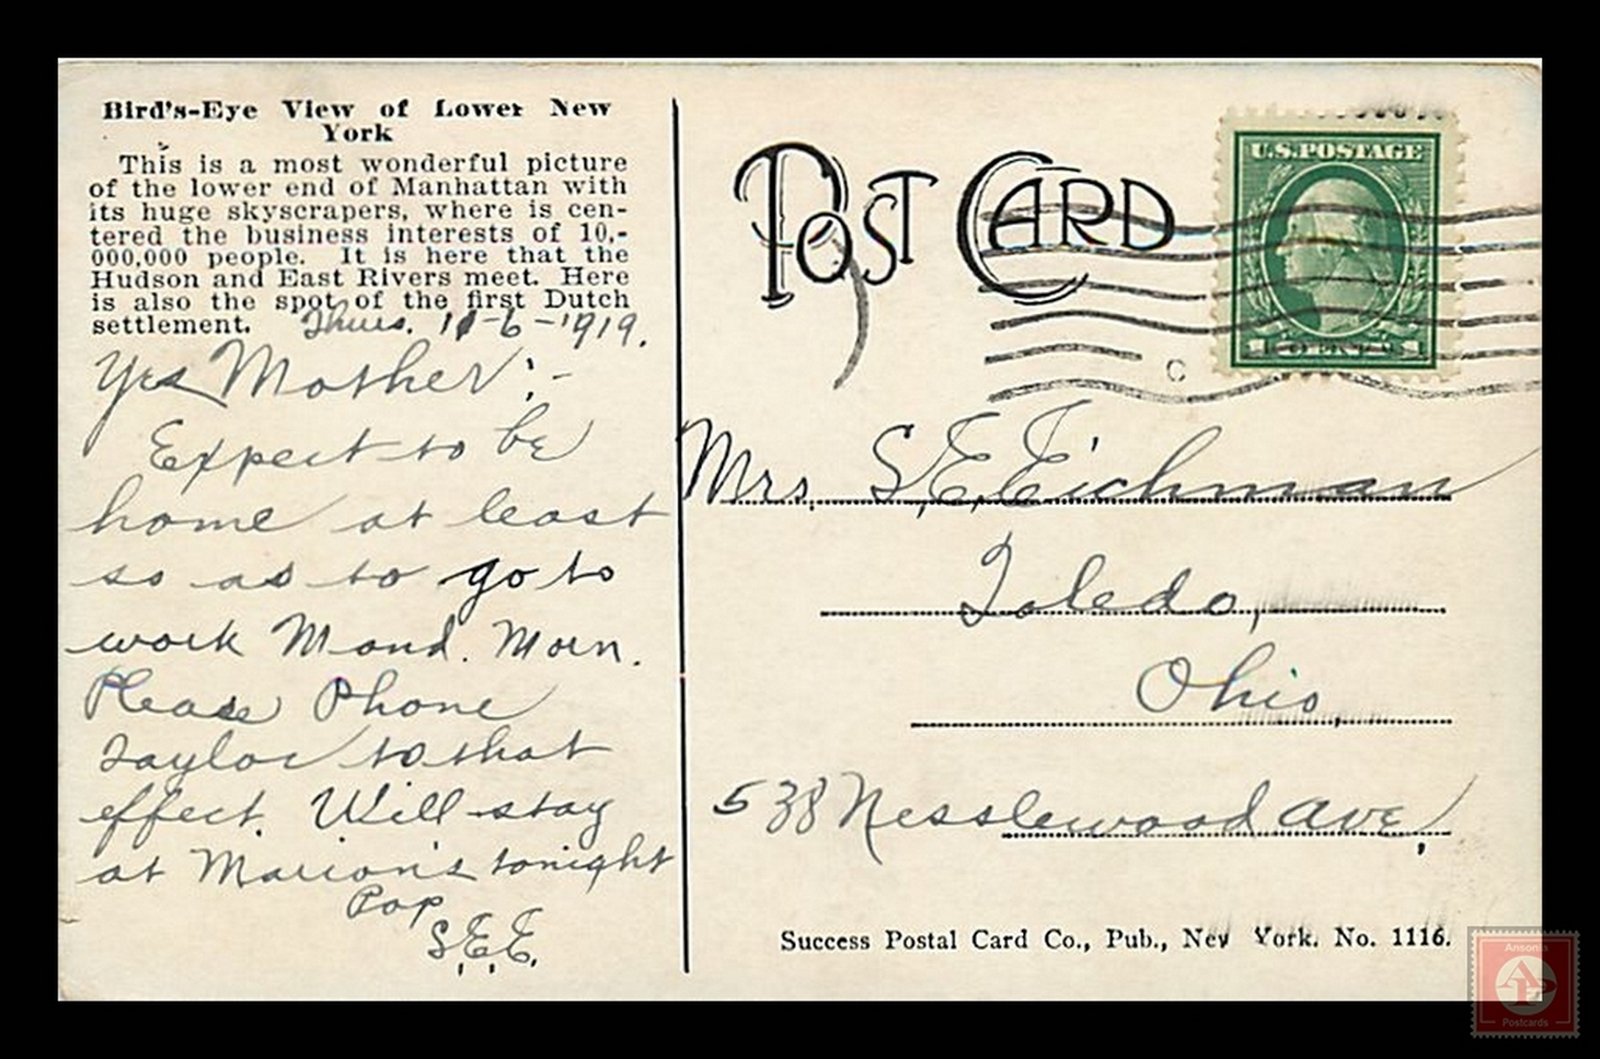 Bird's-Eye View of Lower New
York
This is a most wonderful picture
of the lower end of Manhattan with
its huge skyscrapers, where is cen-
tered the business interests of 10,-
000,000 people. It is here that the
Hudson and East Rivers meet. Here
is also the spot of the first Dutch
settlement.
Thurs. 11-6-1919.
Yes Mother:-
Expect to be
home at least
so as to go to
work Mond. Morn.
Please Phone
Taylor to that
effect. Will stay
at Marion's tonight
Pop
S.E.E.
POST CARD
U.S.POSTAGE
C
Mrs. S.E.Eichman
Toledo,
Ohio,
538 Nesslewood Ave,
Success Postal Card Co., Pub., New York. No. 1116.
Ansonia
Postcards